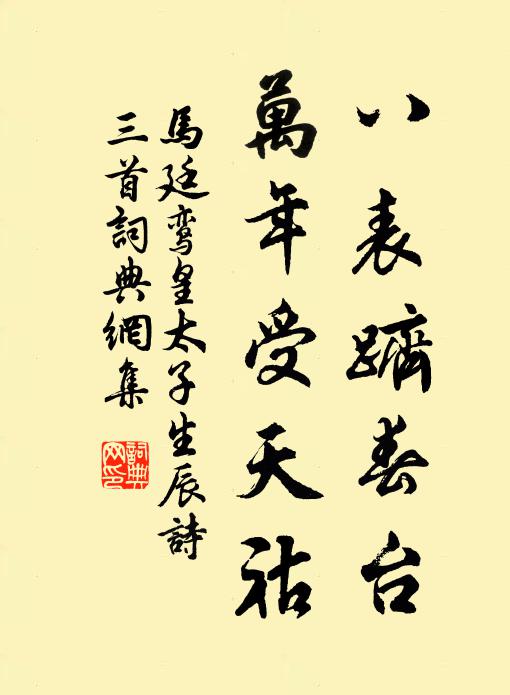 八表躋春台
萬年受天祜
馬廷鸞皇太子生辰詩
三首詞典網集
詞典网印